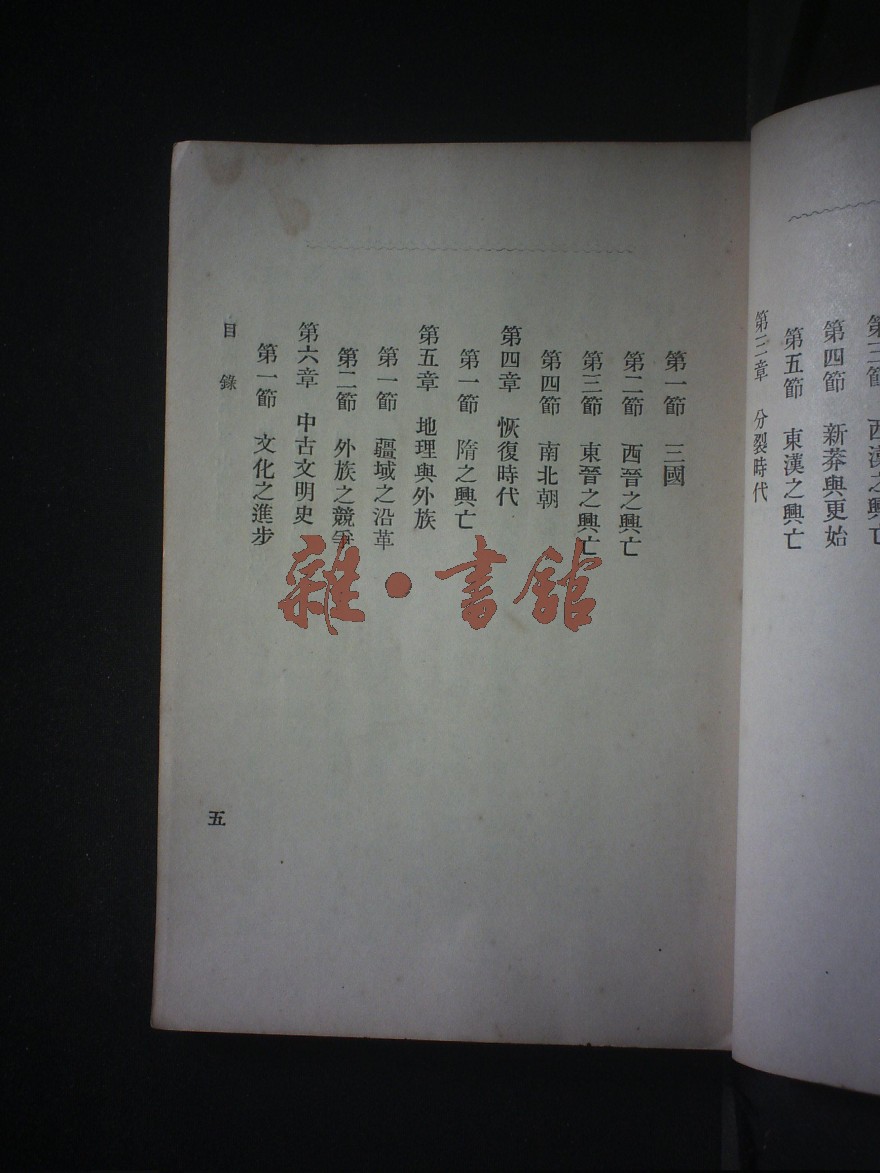 第三節 西漢之興亡
第四節 新莽與更始
第五節 東漢之興亡
第三章 分裂時代
第一節 三國
第二節 西晉之興亡
第三節 東晉之興亡
第四節 南北朝
第四章 恢復時代
第一節 隋之興亡
第五章 地理與外族
第一節 疆域之沿革
第二節 外族之競爭
第六章 中古文明史
第一節 文化之進步
目錄
五
雜·書館